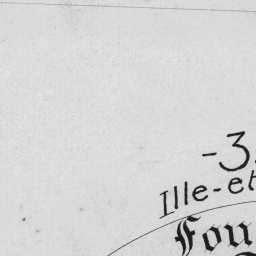 -3
Ille-et
Fou